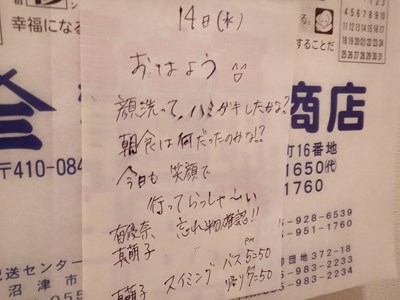 14日(水)
おはよう
顔洗って、ハミガキしたかな?
朝食は何だったのかな!?
今日も 笑顔で
行ってらっしゃ〜い
忘れ物確認!!
真萌子
真萌子 スイミング バス PM 5=50
帰り 7=50
幸福になる
することだ
商店
〒410-084
町16番地
1650(代)
1760
928-6539
951-1760
配送センター
沼津市
055
団地 372-18
983-2233
983-2234